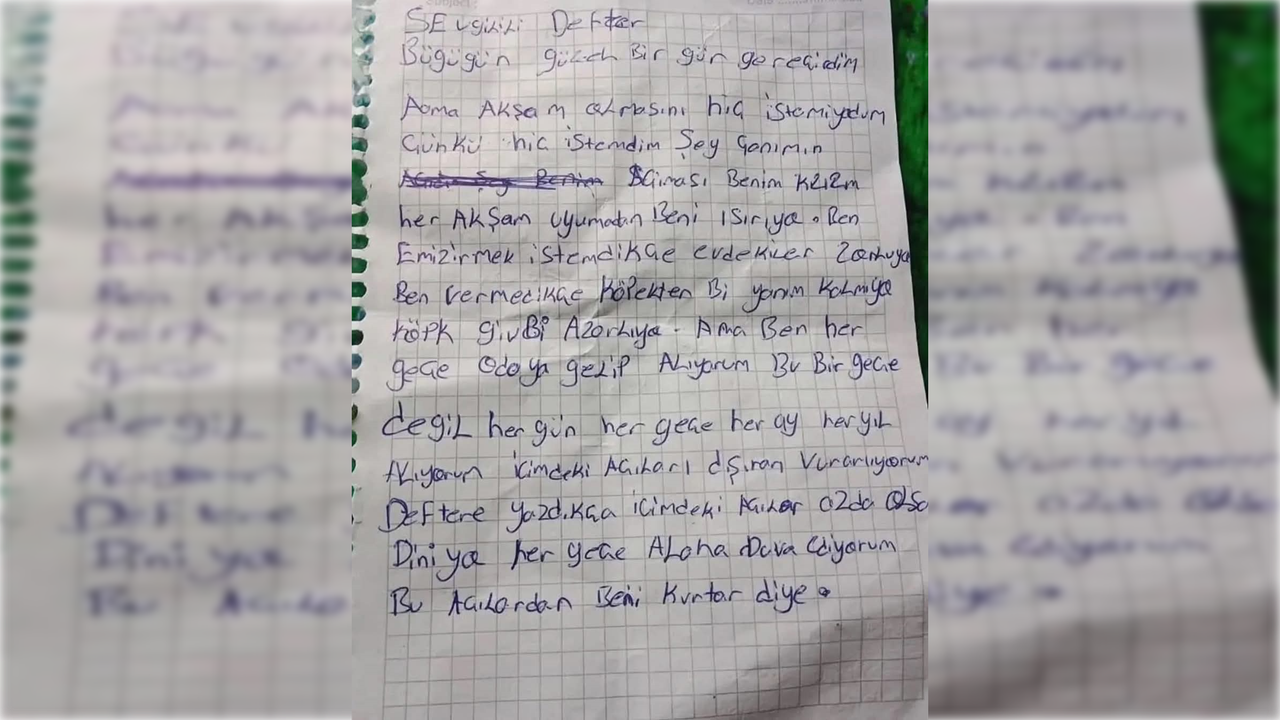 SEvgilili Defter
Bügügün güzel Bir gün gereçidim
Aoma AKşam olmasını hiç istemiyodum
Çünkü hiç istemdim Şey Canımın
Benim Kızım
her AKşam uyumadan Beni ısırıya. Ben
Emizirmek istemdikçe evdekiler Zorluya
Ben vermedikçe köpekten Bi yanım Kalmıya
köpk givBi Azorlıya. Ama Ben her
gece Odaya gelip ALıyorum Bu Bir gece
degiL her gün her gece her ay her yıL
ALıyorum içimdeki Acıları dışıran Vurarlıyorum
Deftere yazdıkça içimdeki Acılar azda Olsa
Diniya her gece ALaha Duva Ediyorum
Bu Acılardan Beni Kurtar diye.